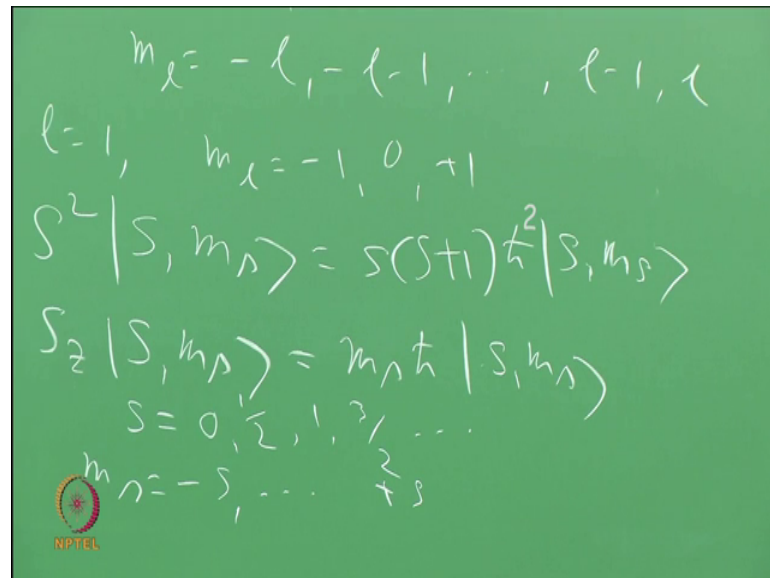 m_l = -l, -l-1, ..., l-1, l
l = 1, m_l = -1, 0, +1
S² |s, m_s⟩ = s(s+1)ħ² |s, m_s⟩
S_z |s, m_s⟩ = m_s ħ |s, m_s⟩
s = 0, 1/2, 1, 3/2, ...
m_s = -s, ... +s
NPTEL